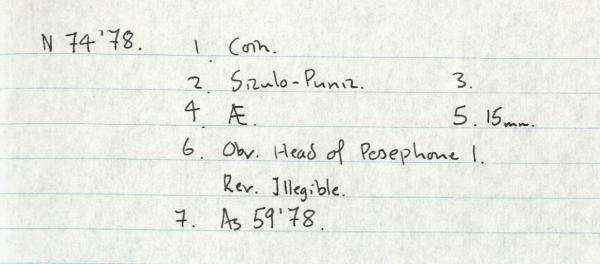 N 74'78. 1. Coin.
2. Siculo-Punic. 3.
4. Æ. 5. 15mm.
6. Obv. Head of Pesephone l.
Rev. Illegible.
7. As 59'78.